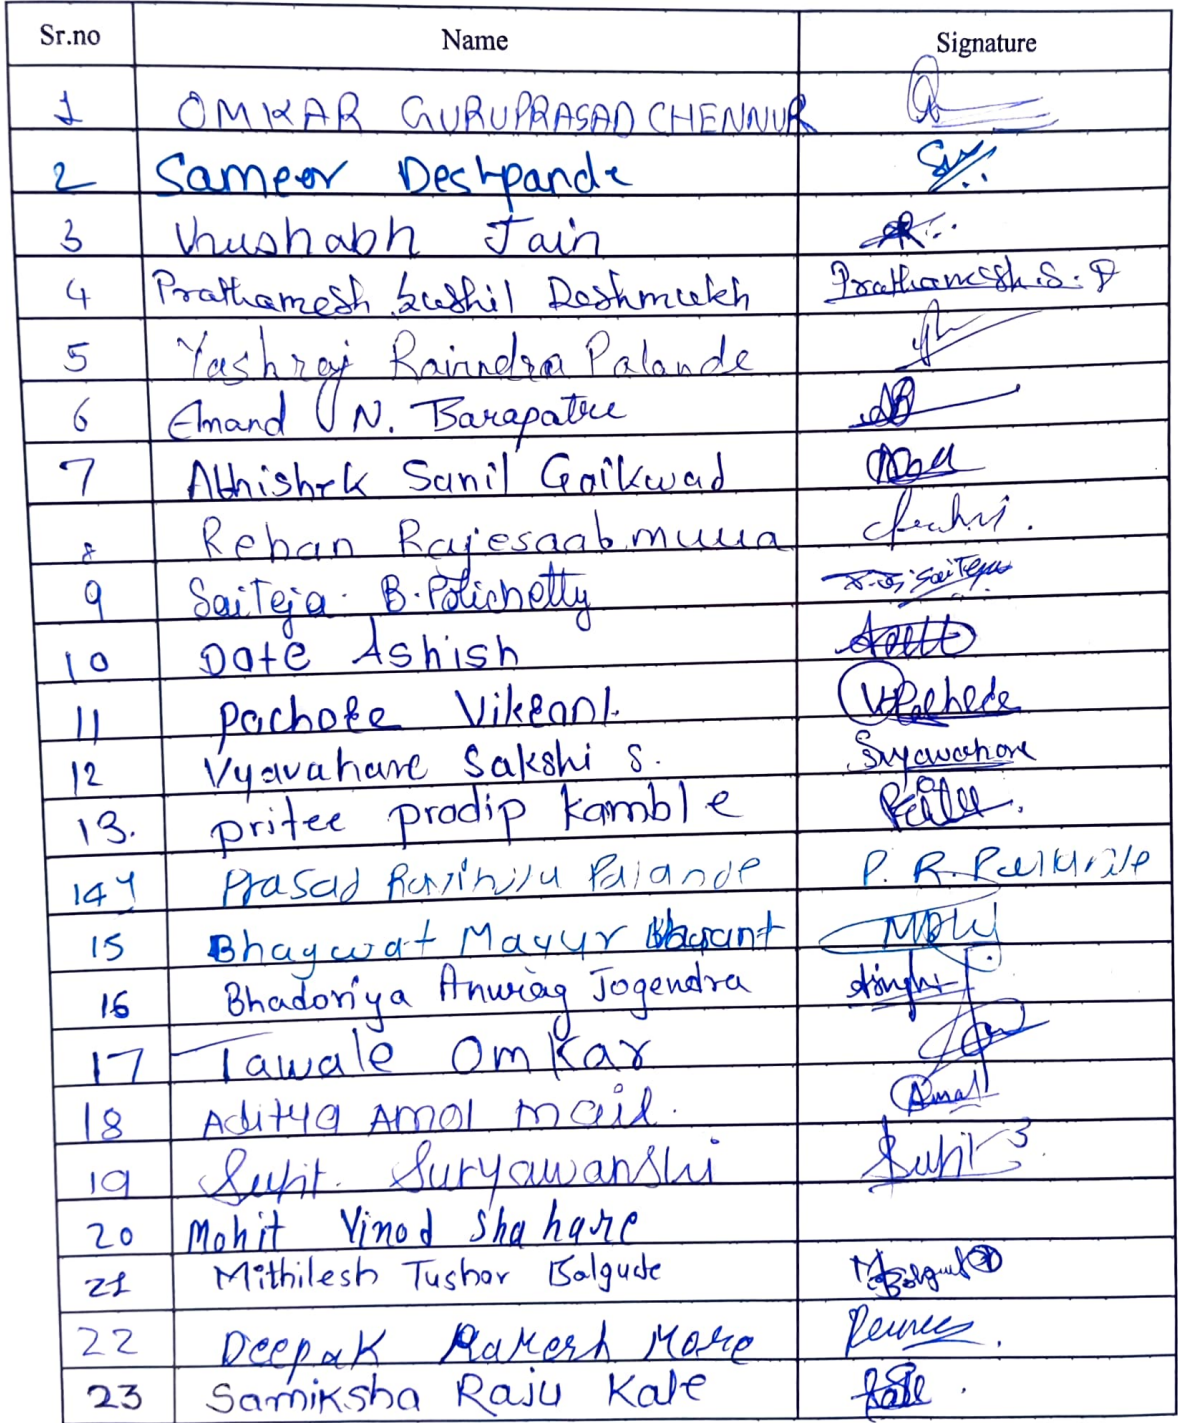 Sr.no Name Signature
1 OMKAR GURUPRASAD CHENNUR
2 Sameer Deshpande
3 Vrushabh Jain
4 Prathamesh Sushil Deshmukh Prathamesh.S.D
5 Yashraj Ravindra Palande
6 Anand N. Barapatre
7 Abhishek Sanil Gaikwad
8 Rehan Rajesaab mulla
9 SaiTeja. B. Polichetty SaiTeja
10 Date Ashish
11 Pachode Vikrant
12 Vyavahare Sakshi S. Svyavahare
13. pritee pradip kamble
14 Prasad Palande P. R.
15 Bhagwat Mayur
16 Bhadoriya Anurag Jogendra
17 Tawale Omkar
18 Aditya Amol mail.
19 Sujit. Suryawanshi Sujit S
20 Mohit Vinod Shahare
21 Mithilesh Tushar Balgude
22 Deepak Rakesh More
23 Samiksha Raju Kale